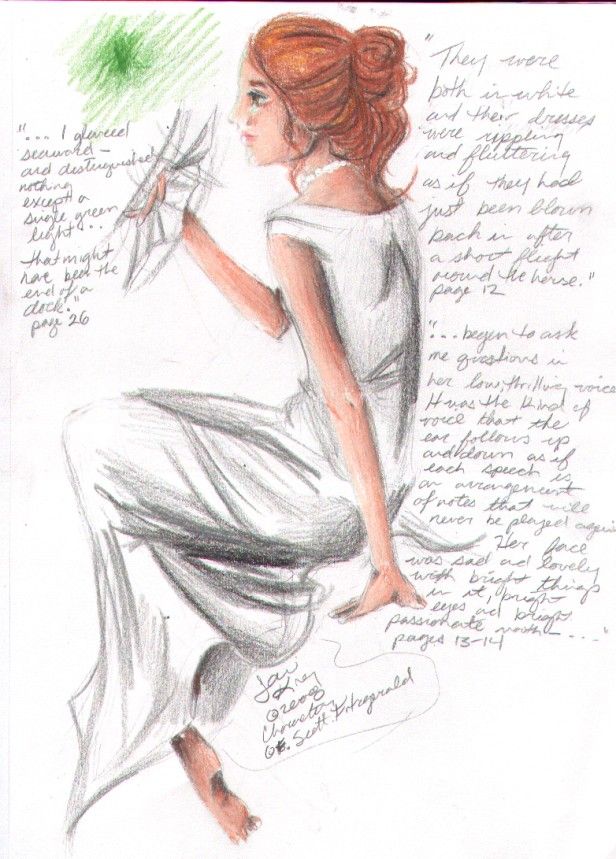 "... I glanced
seaward —
and distinguished
nothing
except a
single green
light...
that might
have been the
end of a
dock."
page 26
"They were
both in white
and their dresses
were rippling
and fluttering
as if they had
just been blown
back in after
a short flight
around the house."
page 12
"... began to ask
me questions in
her low, thrilling voice
It was the kind of
voice that the
ear follows up
and down as if
each speech is
an arrangement
of notes that will
never be played again
Her face
was sad and lovely
with bright things
in it, bright
eyes and bright
passionate mouth — ..."
pages 13-14
©2008
Character
F. Scott Fitzgerald